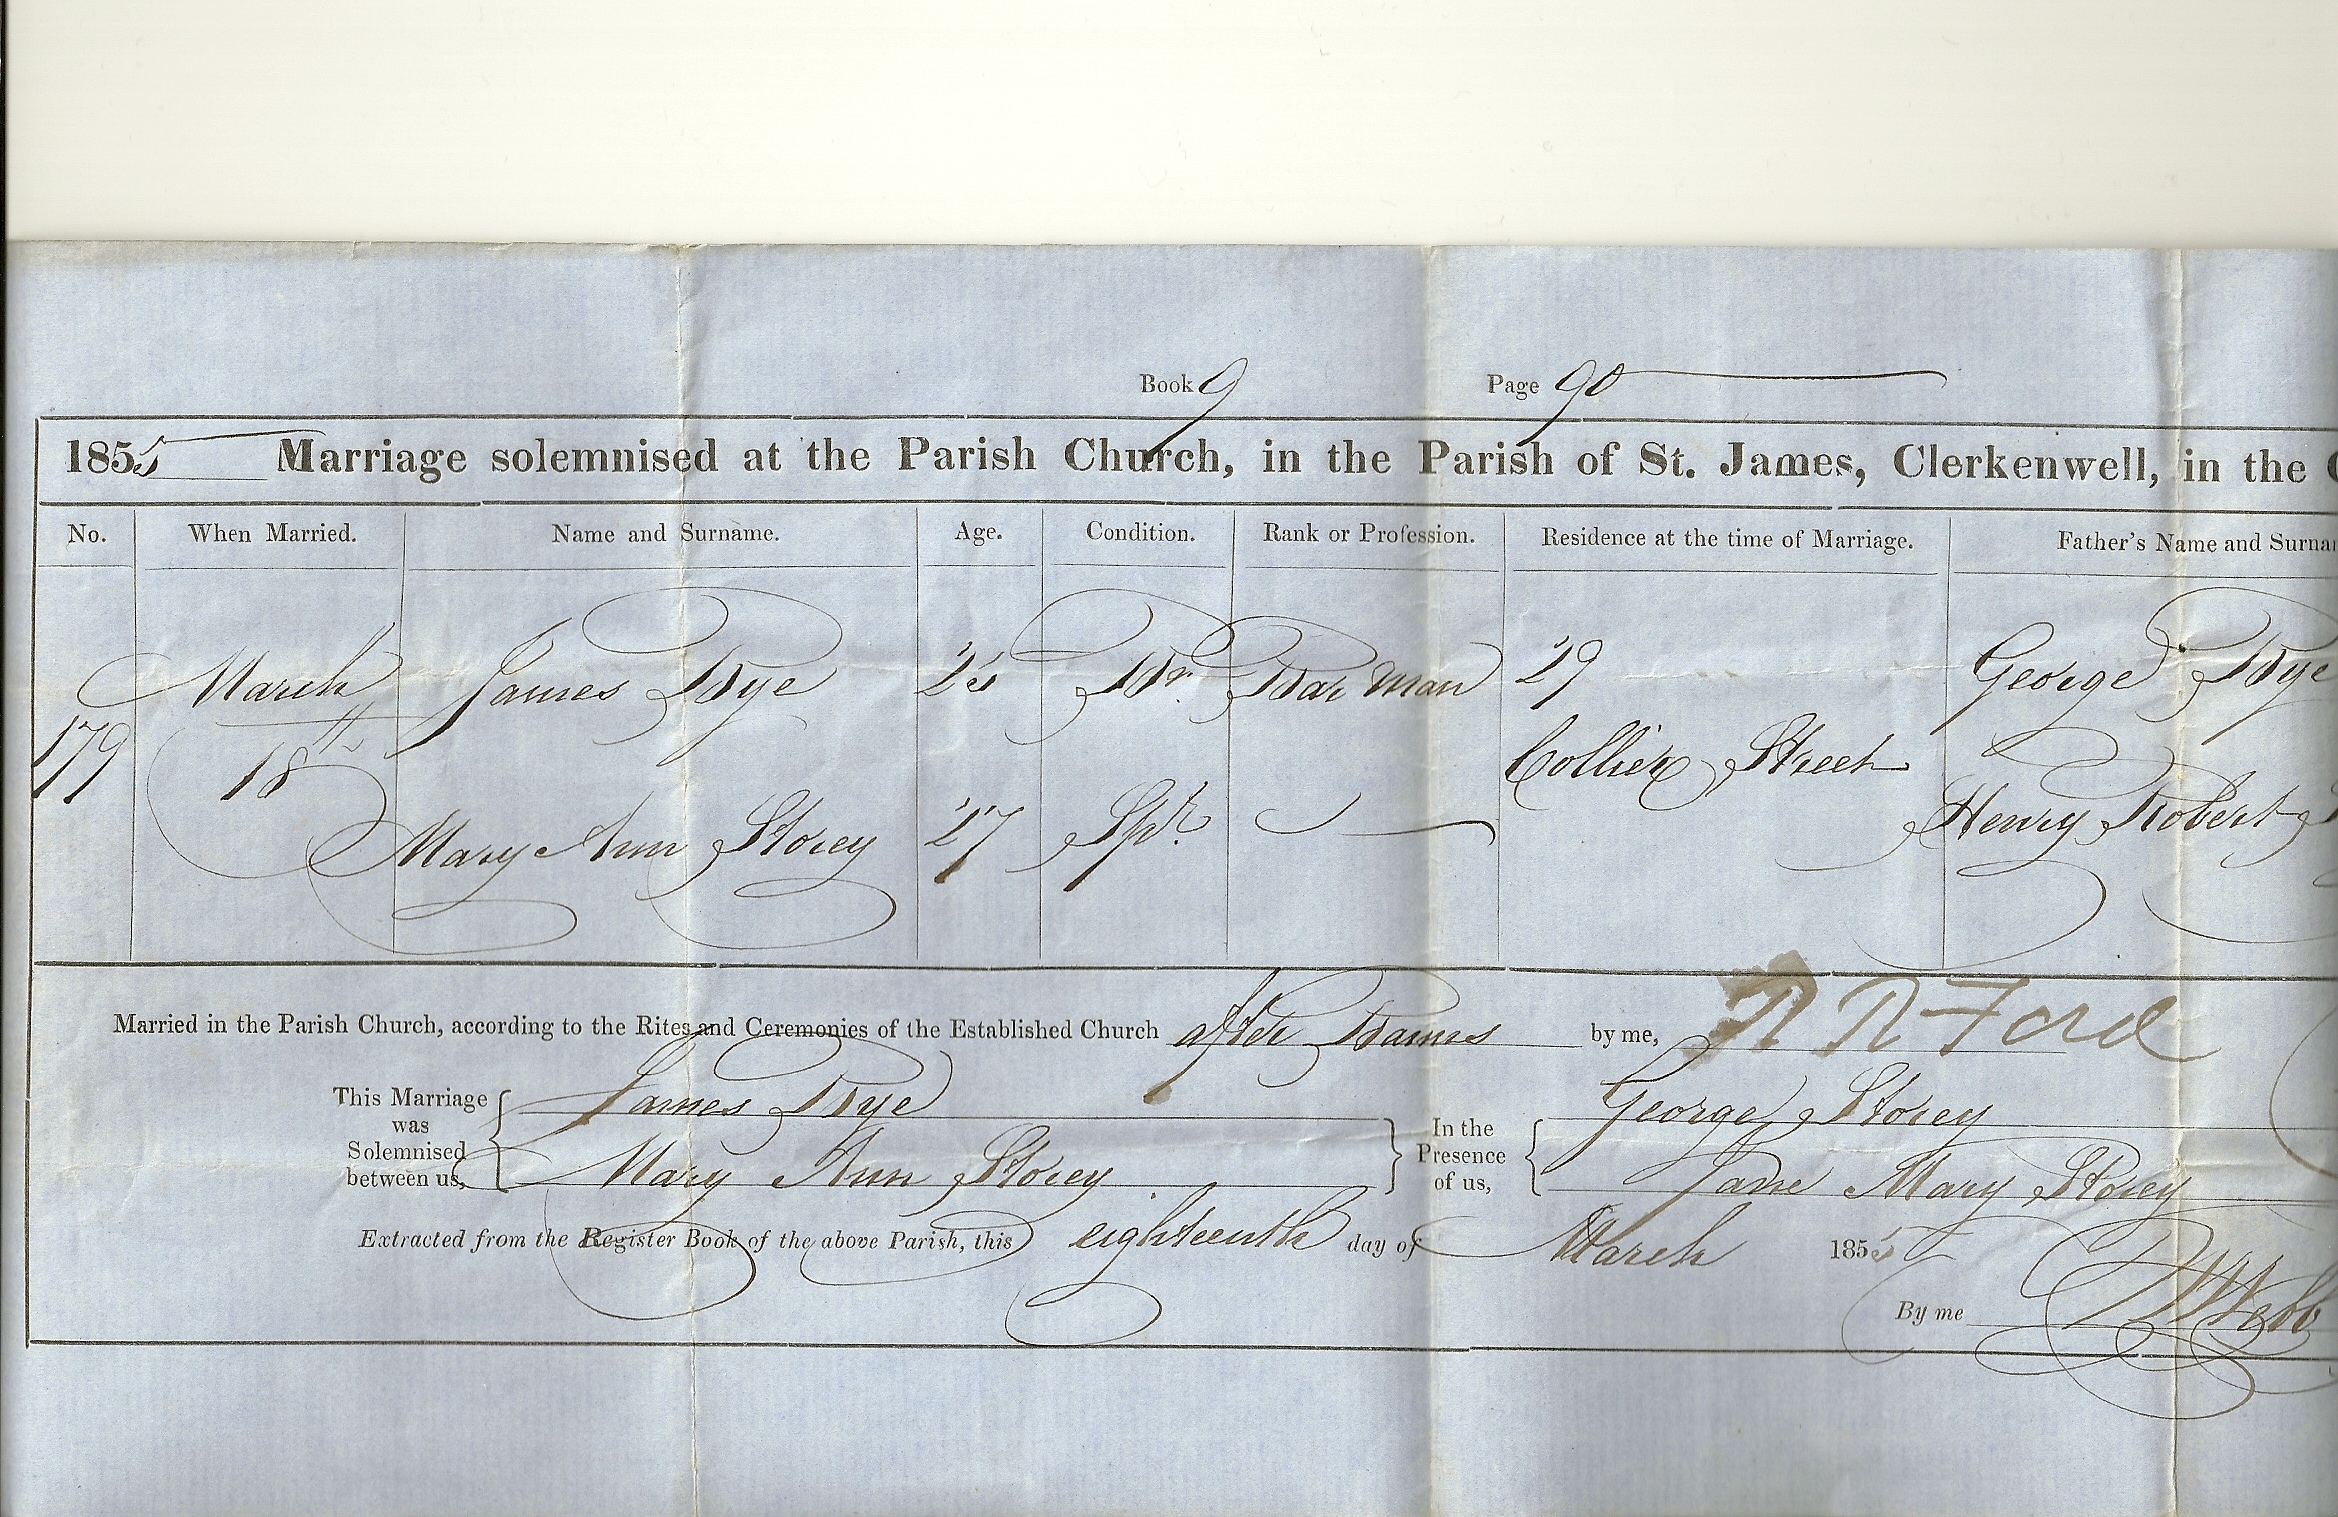 Book 9 Page 90
1855 Marriage solemnised at the Parish Church, in the Parish of St. James, Clerkenwell, in the
No. When Married. Name and Surname. Age. Condition. Rank or Profession. Residence at the time of Marriage. Father's Name and Surna
March James Rye 25 Br. Bar man 29 George Rye
179 18th Collier Street
Mary Ann Storey 27 Spr. Henry Robert
Married in the Parish Church, according to the Rites and Ceremonies of the Established Church after Banns by me, Ford
This Marriage was Solemnised between us, James Rye In the Presence of us, George Storey
Mary Ann Storey Jane Mary Storey
Extracted from the Register Book of the above Parish, this eighteenth day of March 1855
By me Webb